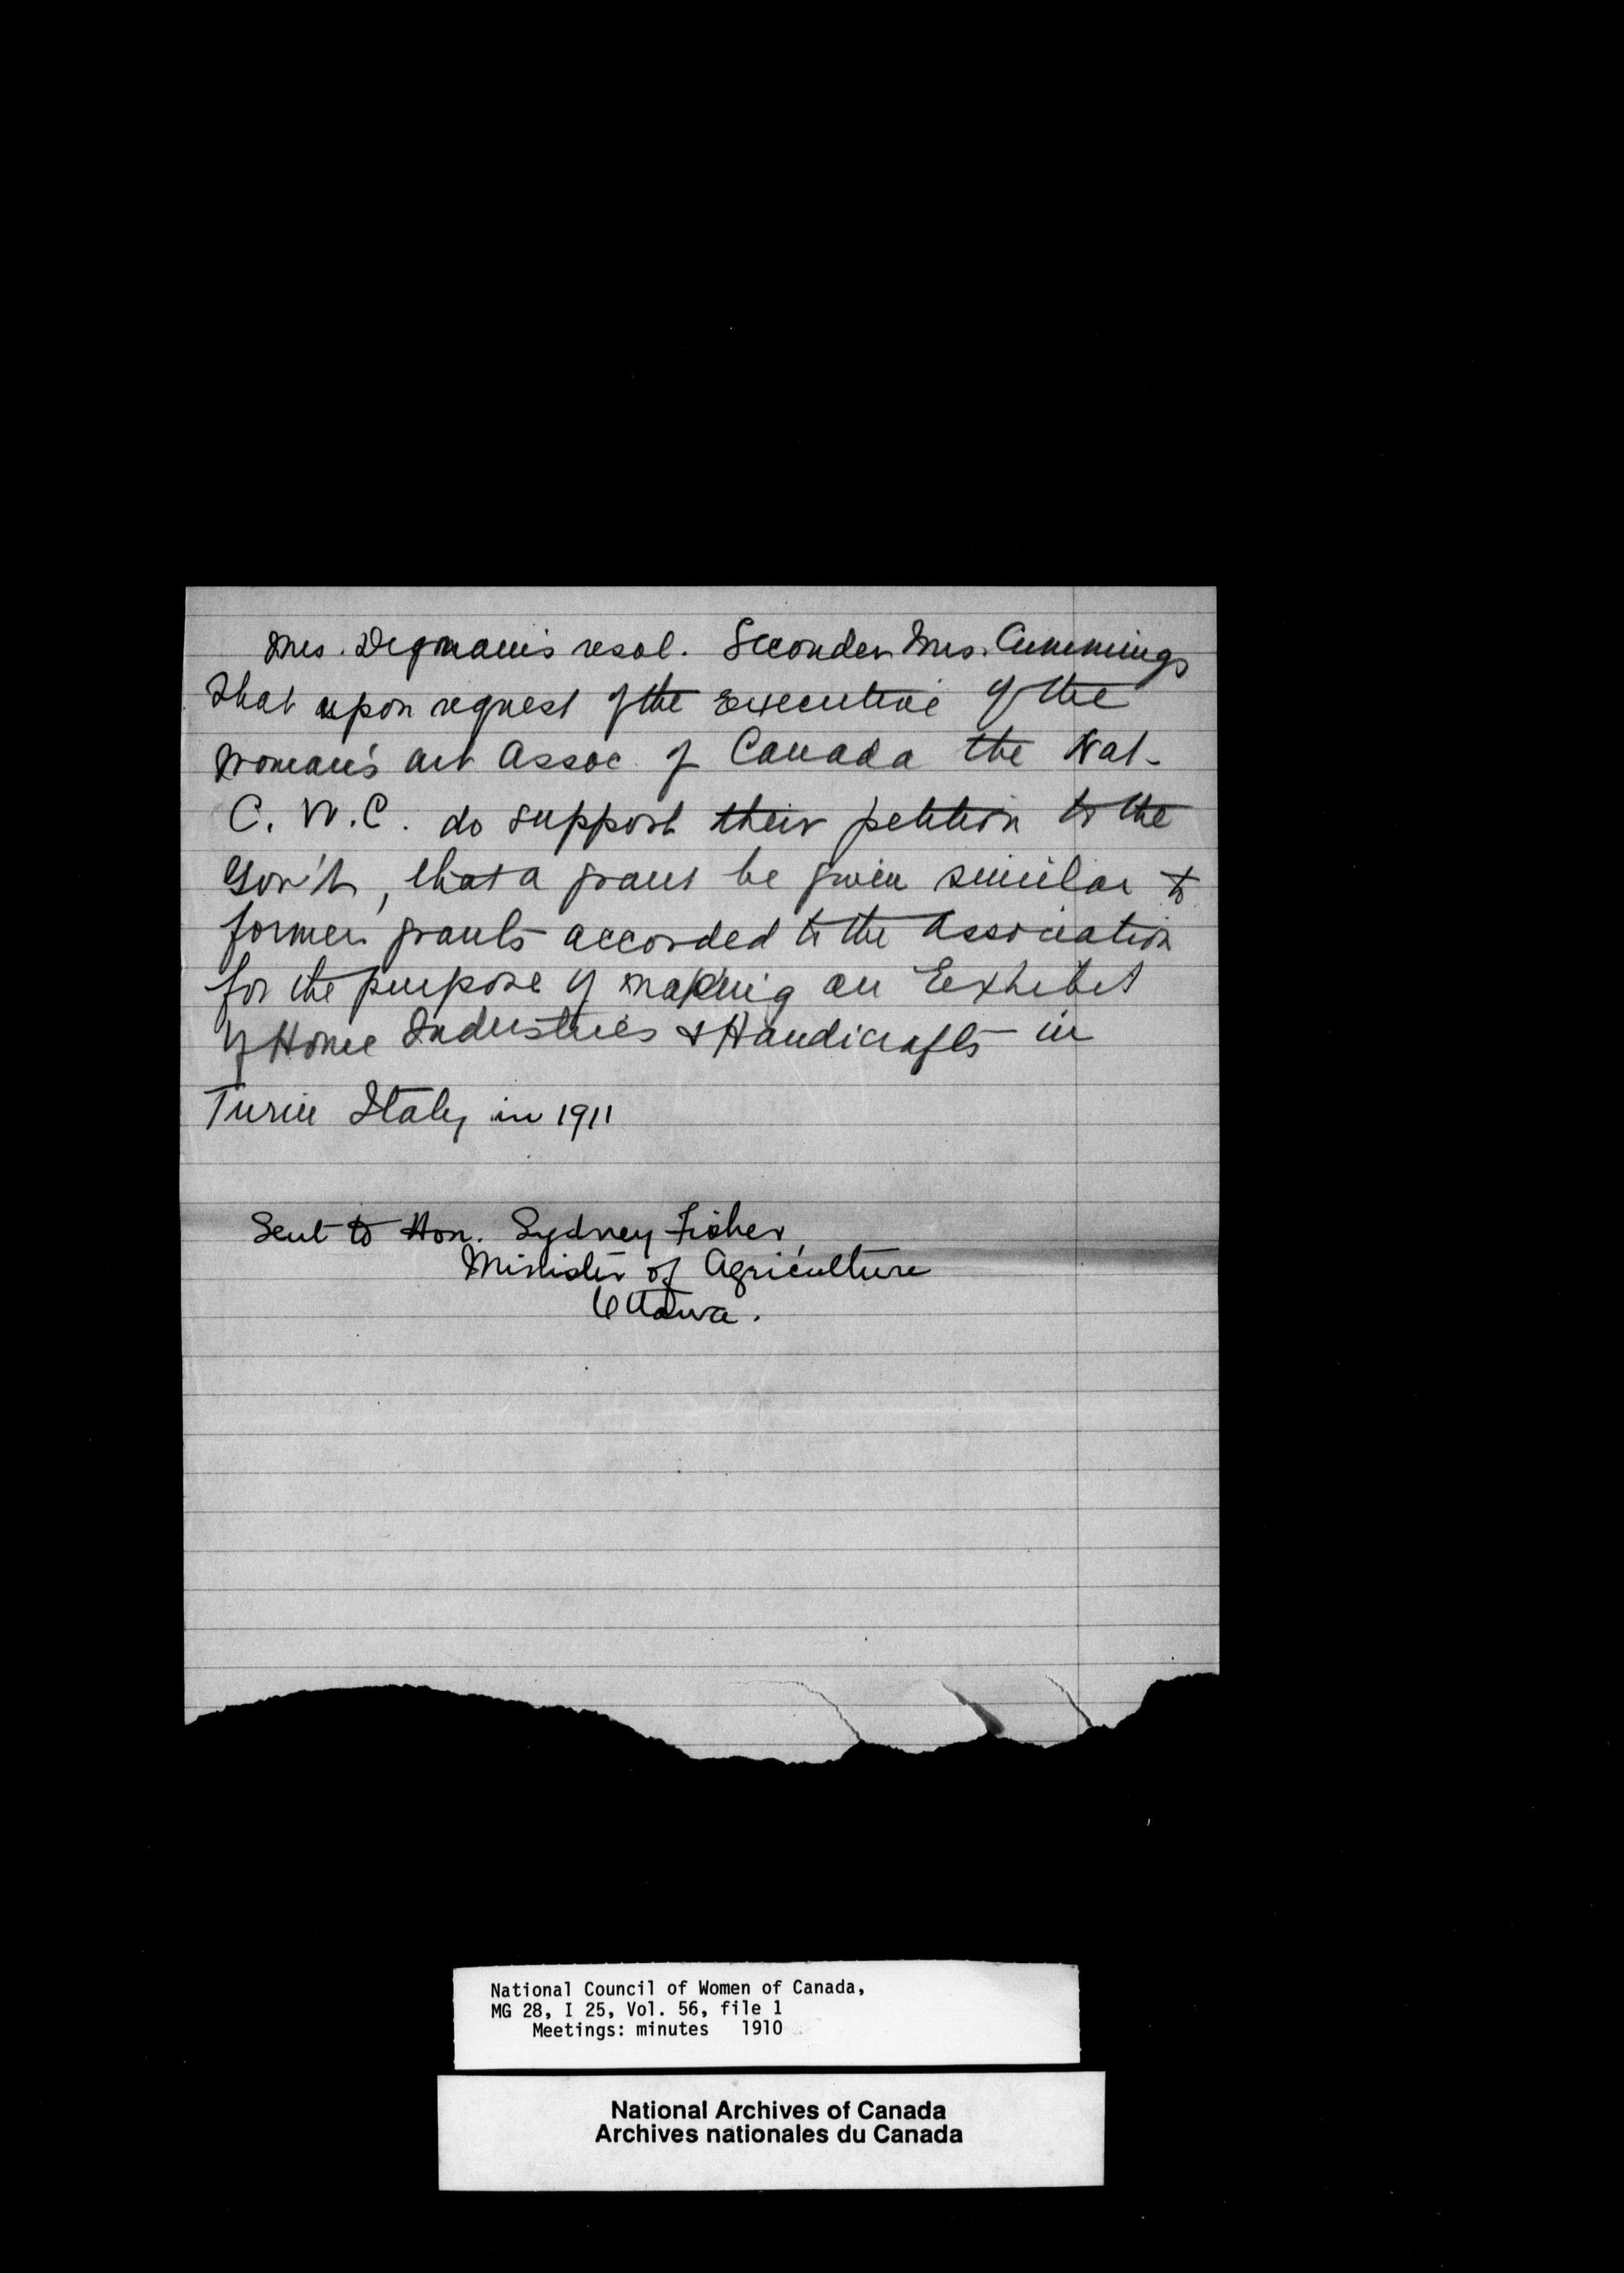 Mrs. Dignam's resol. Seconder Mrs. Cummings
That upon request of the Executive of the
Woman's Art Assoc. of Canada the Nat-
C. W. C. do support their petition to the
Gov't, that a grant be given similar to
former grants accorded to the Association
for the purpose of making an Exhibit
of Home Industries & Handicrafts in
Turin Italy in 1911
Sent to Hon. Sydney Fisher,
Minister of Agriculture
Ottawa.
National Council of Women of Canada,
MG 28, I 25, Vol. 56, file 1
Meetings: minutes 1910
National Archives of Canada
Archives nationales du Canada